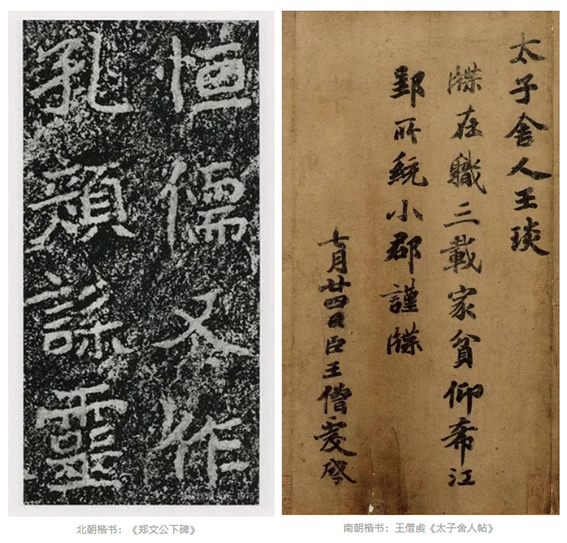 恒儒又作
孔顏誄靈
太子舍人王琰
牒在職三載家貧仰希江
郢所統小郡謹牒
七月廿四日臣王僧虔啓
北朝楷书：《郑文公下碑》
南朝楷书：王僧虔《太子舍人帖》